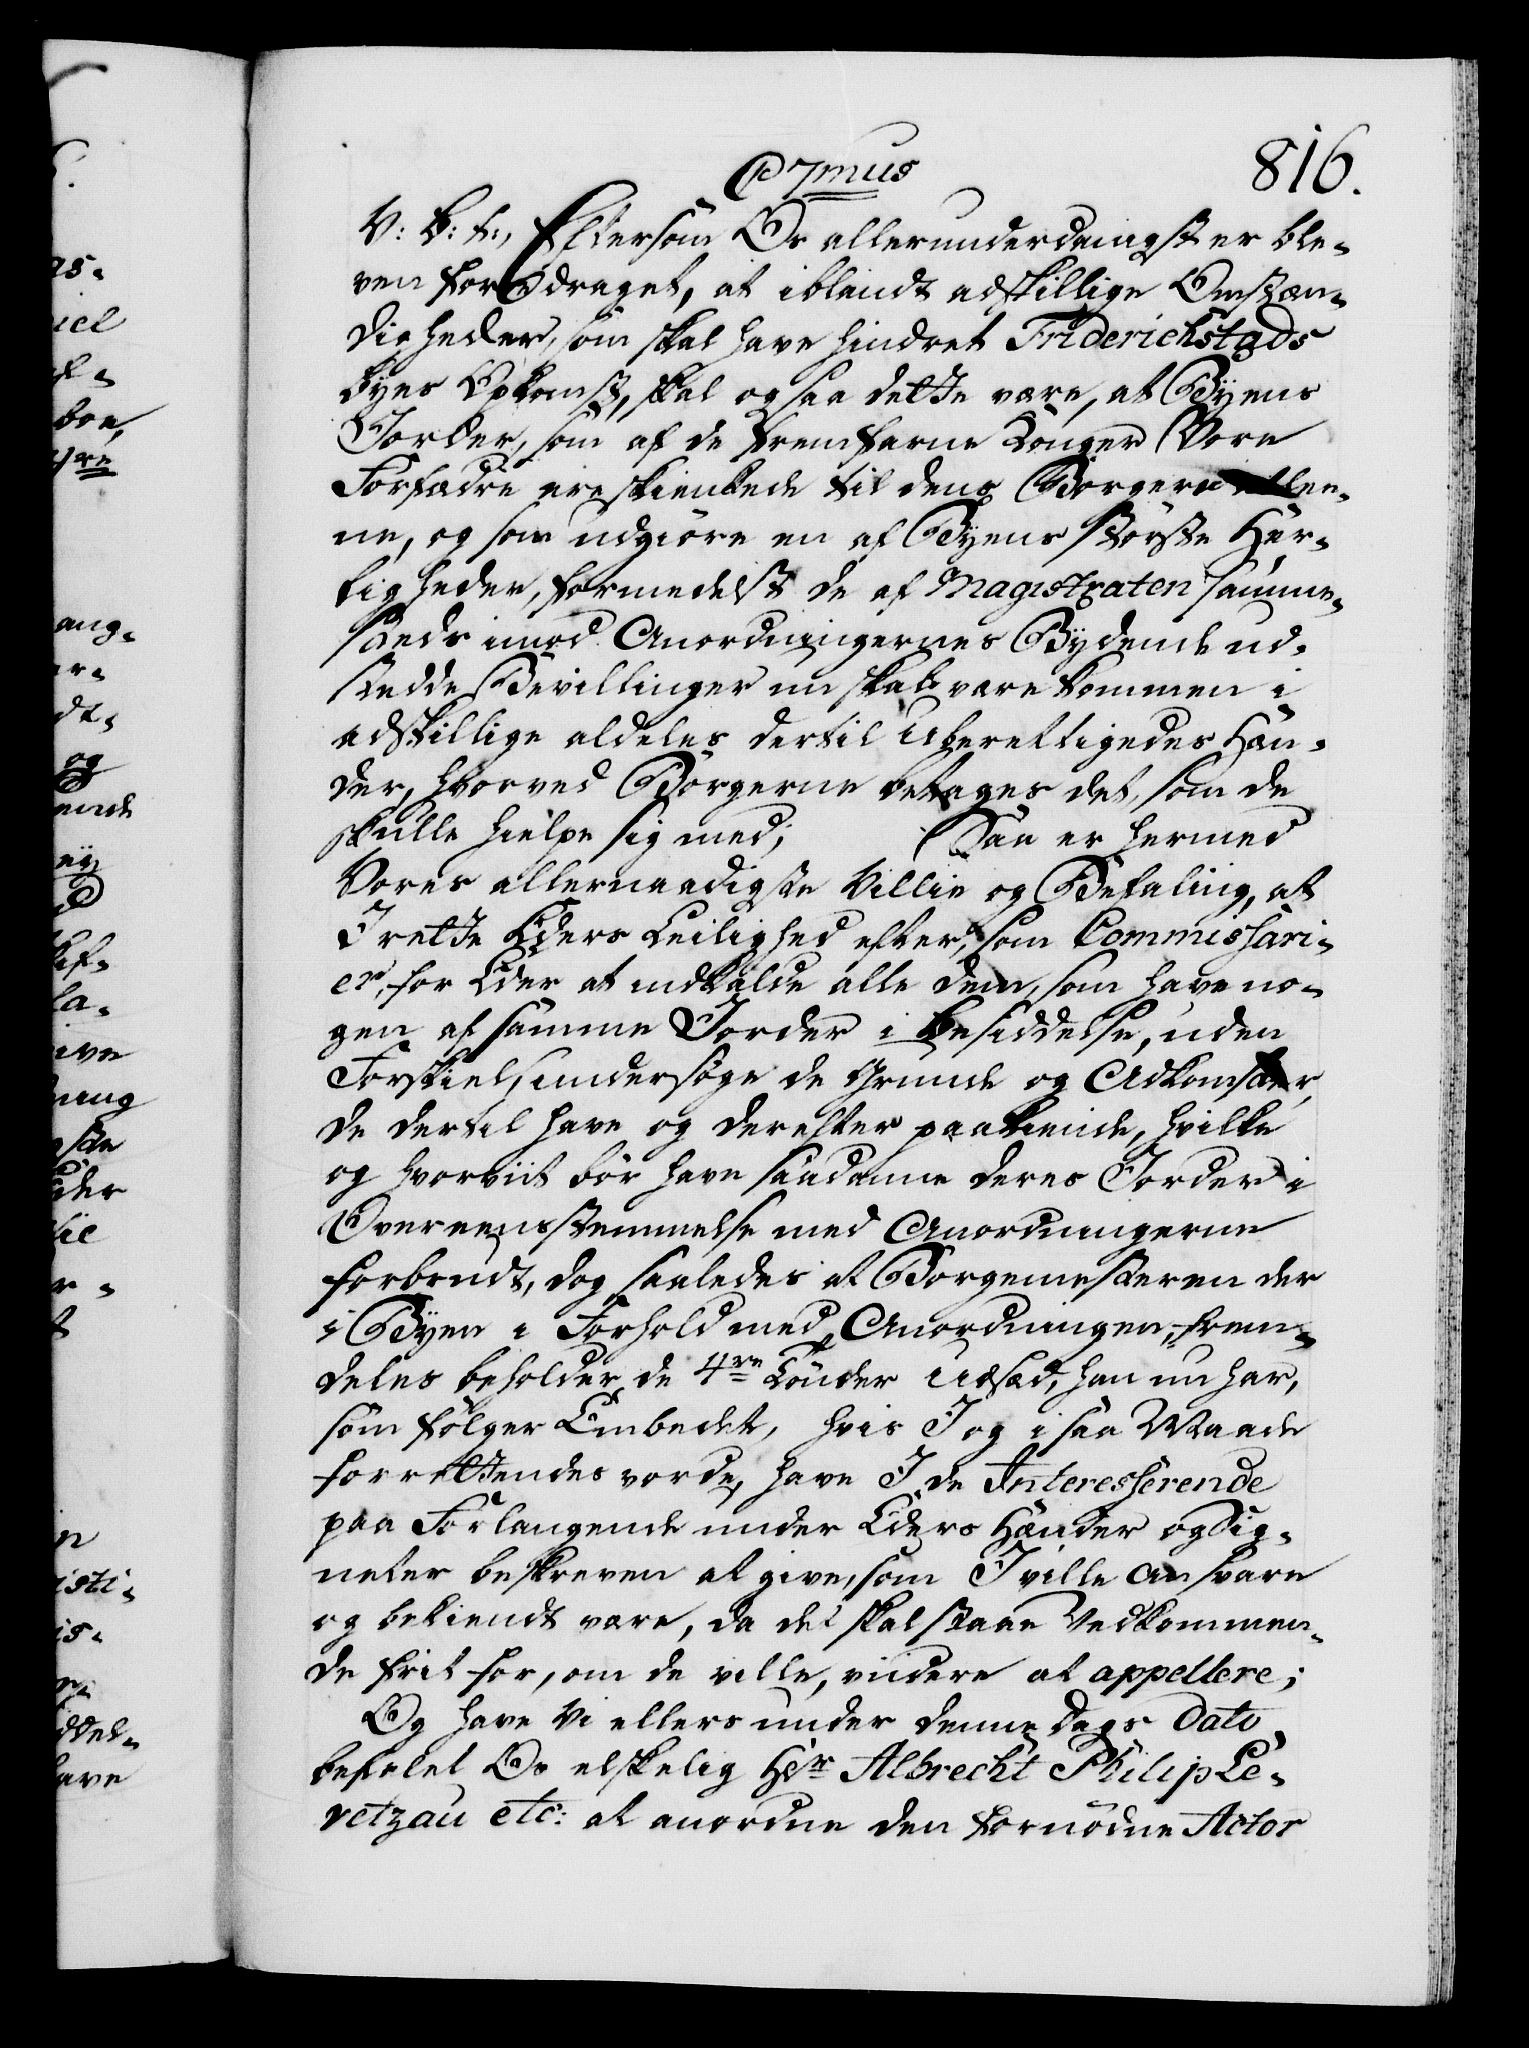 C 7mus
816.
V: B: t:, Eftersom Os allerunderdanigst er ble-
ven foredraget, at iblandt adskillige Omstæn-
digheder, som skal have hindret Friderichstads
byes Opkomst, skal ogsaa dette være, at Byens
Jorder, som af de fremfarne Konger Vore
Forfædre ere skienkede til dens Borgere allee-
ne, og som udgiøre en af Byens störste Her-
ligheder, formedelst de af Magistraten samme-
steds imod Anordningernes Bydende ud-
stedde Bevillinger nu skal være kommen i
adskillige aldeles dertil uberettigedes Hæn-
der, hvorved Borgerne betages det, som de
skulle hielpe sig med; Saa er hermed
Vores allernaadigste Villie og Befaling, at
I rette Eders Leilighed efter, som Commissari-
er, for Eder at indkalde alle dem, som have no-
gen af samme Jorder i besiddelse, uden
Forskiel, undersöge de Grunde og Adkomster,
de dertil have og derefter paakiende, hvilke
og hvorviit bör have saadanne deres Jorder i
Overeensstemmelse med Anordningerne
forbrudt, dog saaledes at Borgemesteren der
i Byen i Forhold med Anordningen, frem-
deles beholder de 4re Tönder Udsæd, han nu har,
som fölger Embedet, hvis I og i saa Maade
forrettendes vorde, have I de Interesserende
paa Forlangende under Eders Hænder og Sig-
neter beskreven at give, som I ville ansvare
og bekiendt være, da det skal staae Vedkommen-
de frit for, om de ville, videre at appellere;
Og have Vi ellers under denne Dags Dato
befalet Os elskelig Hr Albrecht Philip Le-
vetzau etc: at anordne den fornödne Actor